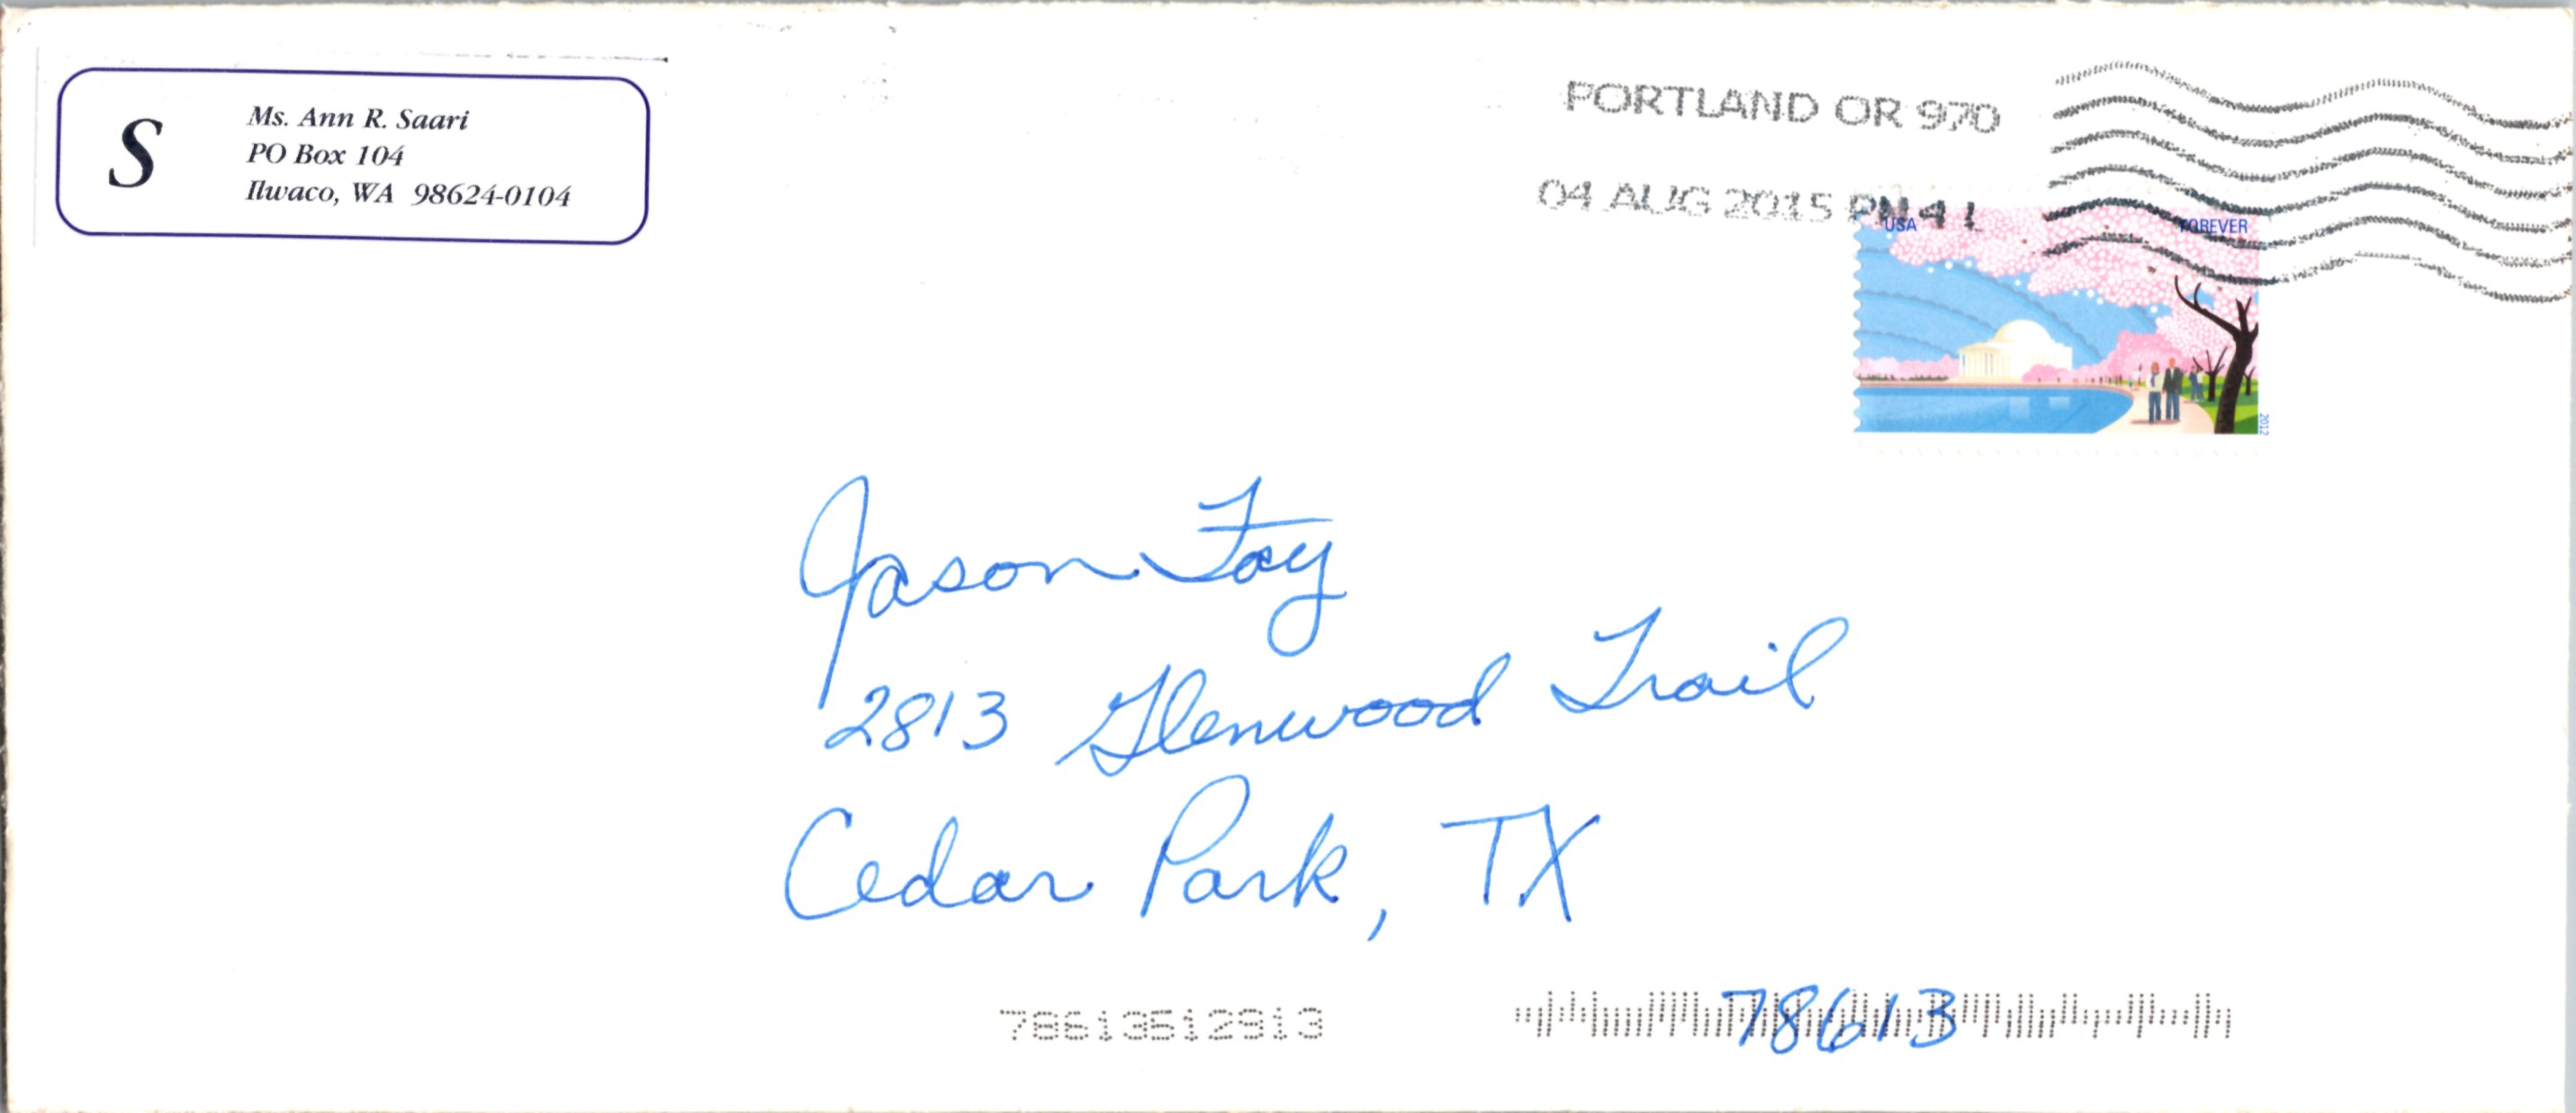 S
Ms. Ann R. Saari
PO Box 104
Ilwaco, WA 98624-0104
PORTLAND OR 970
04 AUG 2015 PM 4 L
USA
FOREVER
2012
Jason Foy
2813 Glenwood Trail
Cedar Park, TX
78613
78613512913